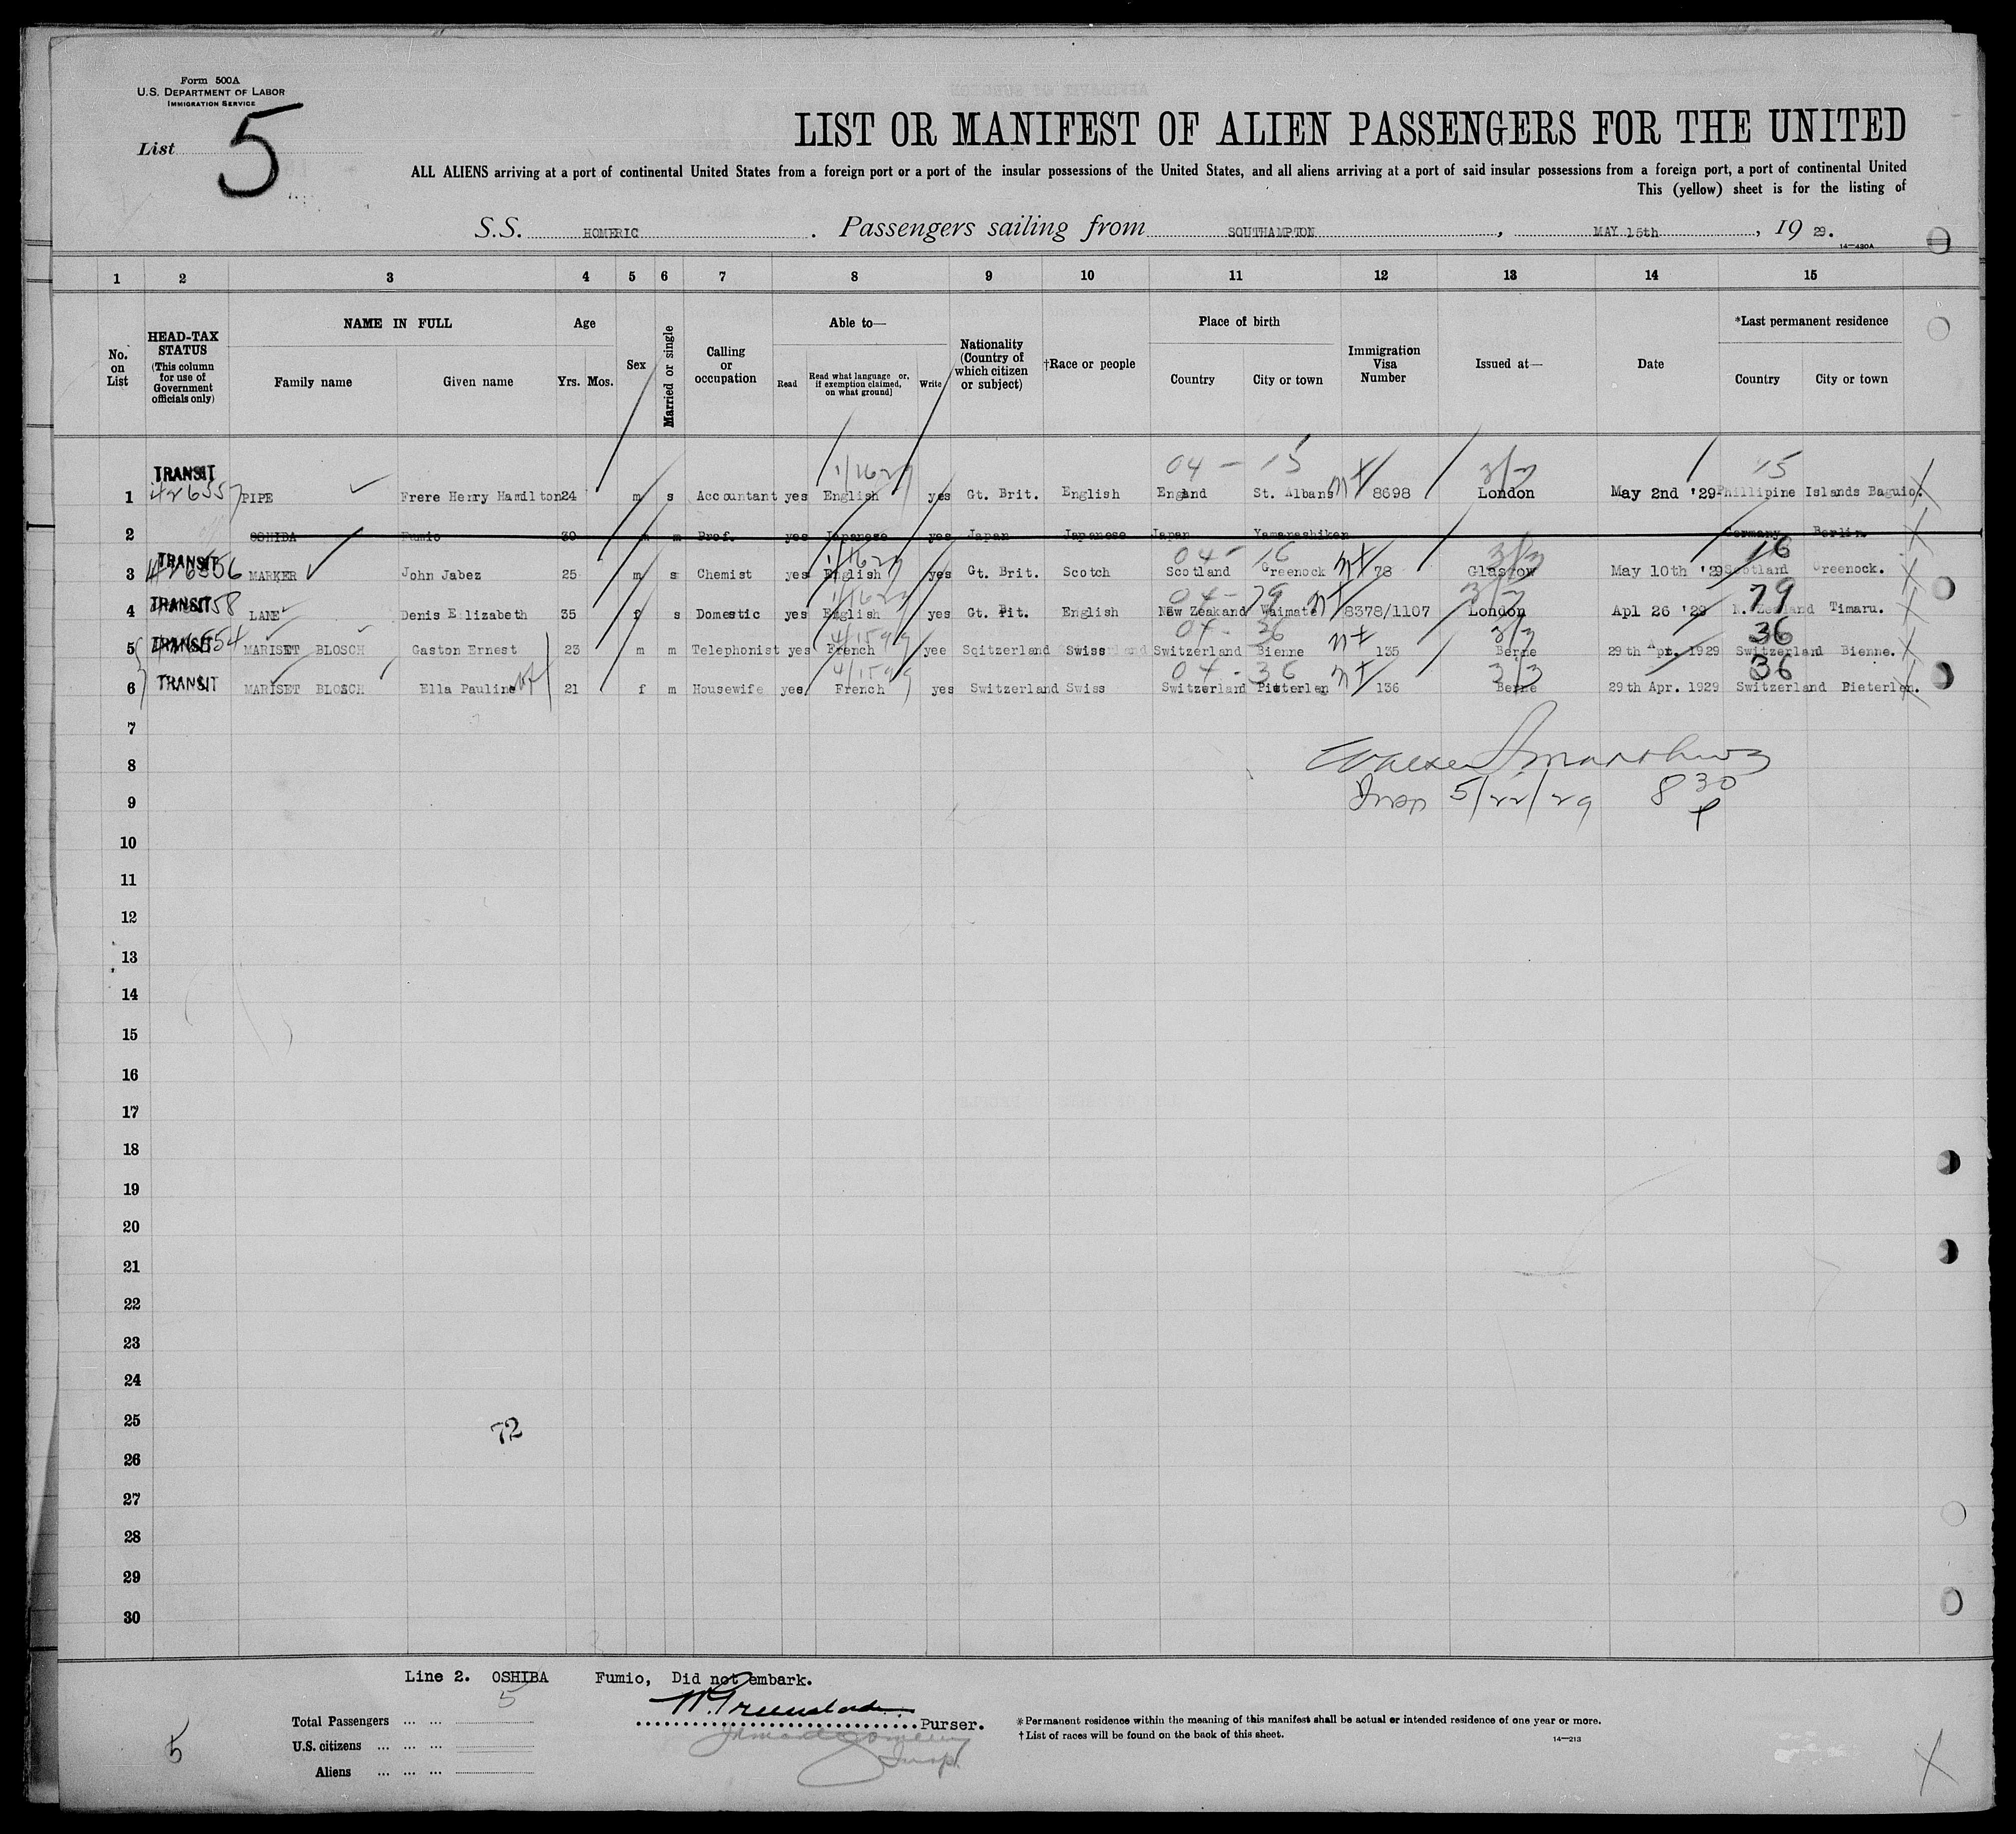 Form 500A
U.S. DEPARTMENT OF LABOR
IMMIGRATION SERVICE
List 5
LIST OR MANIFEST OF ALIEN PASSENGERS FOR THE UNITED
ALL ALIENS arriving at a port of continental United States from a foreign port or a port of the insular possessions of the United States, and all aliens arriving at a port of said insular possessions from a foreign port, a port of continental United
This (yellow) sheet is for the listing of
S.S. HOMERIC. Passengers sailing from SOUTHAMPTON, MAY 15th, 19 29.
14-430A
1 2 3 4 5 6 7 8 9 10 11 12 13 14 15
No. on List
HEAD-TAX STATUS (This column for use of Government officials only)
NAME IN FULL
Family name Given name
Age
Yrs. Mos.
Sex
Married or single
Calling or occupation
Able to—
Read
Read what language or, if exemption claimed, on what ground]
Write
Nationality (Country of which citizen or subject)
†Race or people
Place of birth
Country City or town
Immigration Visa Number
Issued at—
Date
*Last permanent residence
Country City or town
04 - 15 3/3 15
1 TRANSIT 426557 PIPE Frere Henry Hamilton 24 m s Accountant yes English yes Gt. Brit. English England St. Albans 8698 London May 2nd '29 Phillipine Islands Baguio.
2 OSHIBA Fumio 30 m m Prof. yes Japanese yes Japan Japanese Japan Yamanashiken Germany Berlin.
04 - 16 3/3 16
3 TRANSIT 426556 MARKER John Jabez 25 m s Chemist yes English yes Gt. Brit. Scotch Scotland Greenock 78 Glasgow May 10th '29 Scotland Greenock.
04 - 79 3/3 79
4 TRANSIT LANE Denis Elizabeth 35 f s Domestic yes English yes Gt. Bit. English New Zeakand Waimate 8378/1107 London Apl 26 '29 N. Zealand Timaru.
04 - 36 3/3 36
5 TRANSIT MARISET BLOSCH Gaston Ernest 23 m m Telephonist yes French yee Sqitzerland Swiss Switzerland Bienne 135 Berne 29th Apr. 1929 Switzerland Bienne.
04 - 36 3/3 36
6 TRANSIT MARISET BLOSCH Ella Pauline 21 f m Housewife yes French yes Switzerland Swiss Switzerland Pieterlen 136 Berne 29th Apr. 1929 Switzerland Pieterlen.
7
8
Insp 5/22/29 8 30 P
9
10
11
12
13
14
15
16
17
18
19
20
21
22
23
24
25
72
26
27
28
29
30
Line 2. OSHIBA Fumio, Did not embark.
Total Passengers ... ... 5
Purser.
U.S. citizens ... ... ...
Aliens ... ... ...
5
Insp.
*Permanent residence within the meaning of this manifest shall be actual or intended residence of one year or more.
†List of races will be found on the back of this sheet.
14-213